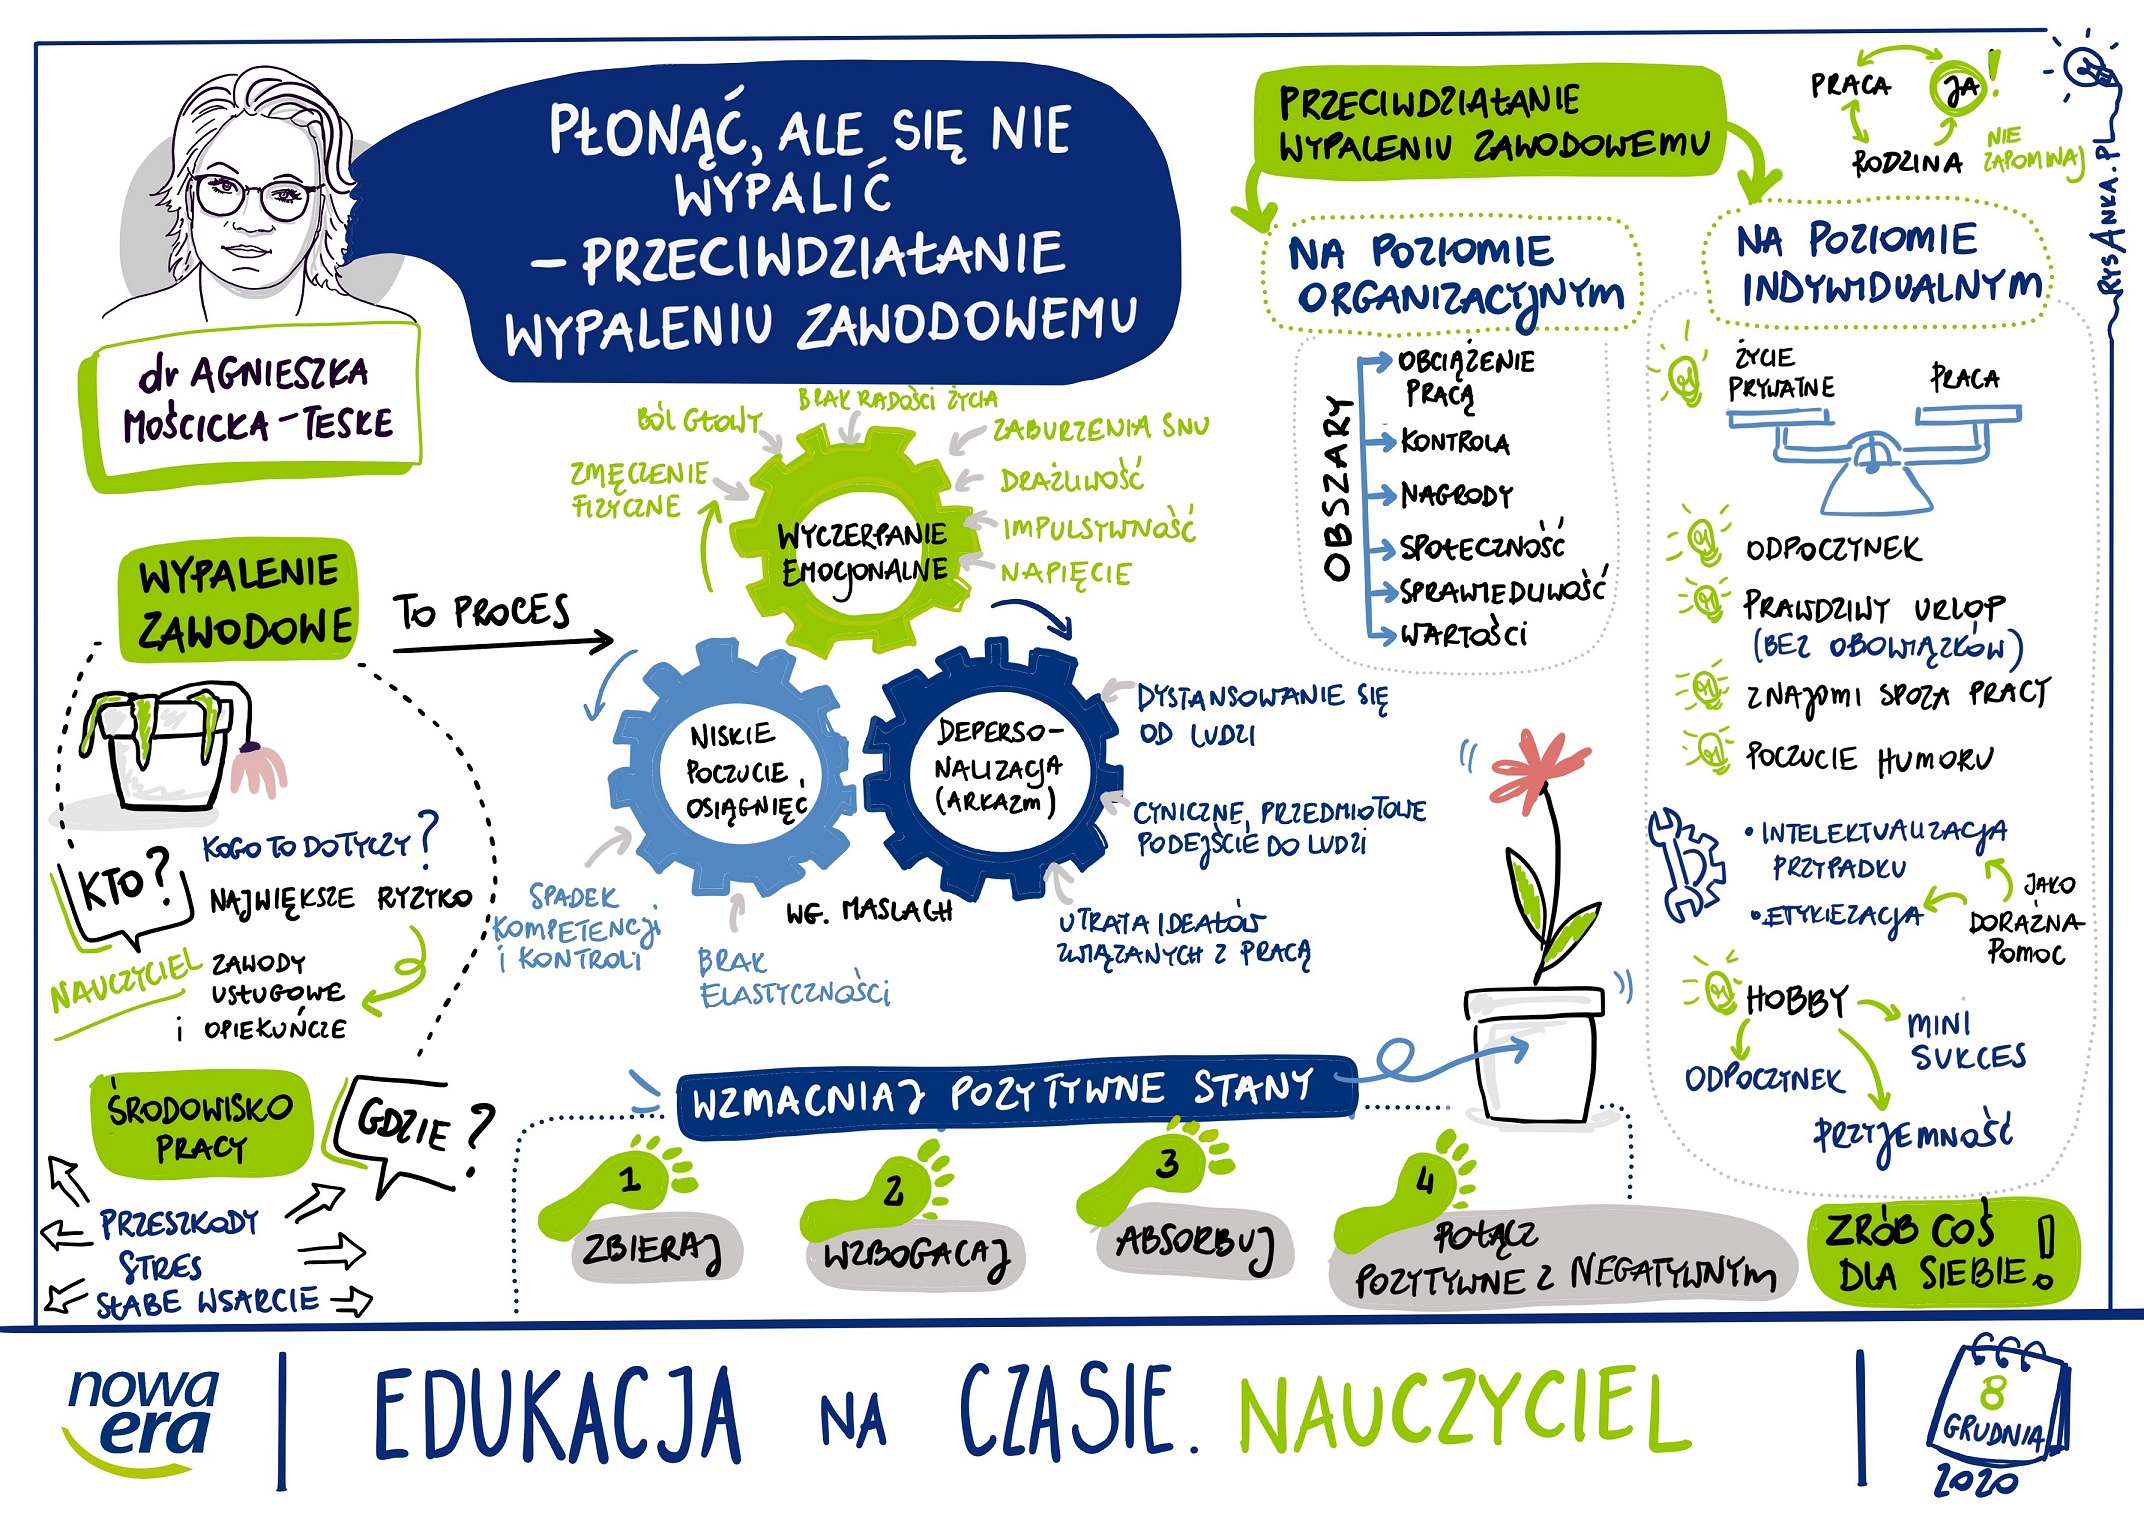 PŁONĄĆ, ALE SIĘ NIE
WYPALIĆ
– PRZECIWDZIAŁANIE
WYPALENIU ZAWODOWEMU
dr AGNIESZKA
MOŚCICKA-TESKE
WYPALENIE
ZAWODOWE
TO PROCES
KTO?
KOGO TO DOTYCZY?
NAJWIĘKSZE RYZYKO
NAUCZYCIEL
ZAWODY
USŁUGOWE
i OPIEKUŃCZE
ŚRODOWISKO
PRACY
GDZIE?
PRZESZKODY
STRES
SŁABE WSARCIE
ZMĘCZENIE
FIZYCZNE
BÓL GŁOWY
BRAK RADOŚCI ŻYCIA
ZABURZENIA SNU
DRAŻLIWOŚĆ
IMPULSYWNOŚĆ
NAPIĘCIE
WYCZERPANIE
EMOCJONALNE
NISKIE
POCZUCIE
OSIĄGNIĘĆ
DEPERSO-
NALIZACJA
(ARKAZM)
SPADEK
KOMPETENCJI
I KONTROLI
BRAK
ELASTYCZNOŚCI
WG. MASLACH
DYSTANSOWANIE SIĘ
OD LUDZI
CYNICZNE, PRZEDMIOTOWE
PODEJŚCIE DO LUDZI
UTRATA IDEAŁÓW
ZWIĄZANYCH Z PRACĄ
WZMACNIAJ POZYTYWNE STANY
1
ZBIERAJ
2
WZBOGACAJ
3
ABSORBUJ
4
POŁĄCZ
POZYTYWNE Z NEGATYWNYM
PRZECIWDZIAŁANIE
WYPALENIU ZAWODOWEMU
PRACA
JA!
RODZINA
NIE
ZAPOMINAJ
RYSANKA.PL
NA POZIOMIE
ORGANIZACYJNYM
OBSZARY
OBCIĄŻENIE
PRACĄ
KONTROLA
NAGRODY
SPOŁECZNOŚĆ
SPRAWIEDLIWOŚĆ
WARTOŚCI
NA POZIOMIE
INDYWIDUALNYM
ŻYCIE
PRYWATNE
PRACA
ODPOCZYNEK
PRAWDZIWY URLOP
(BEZ OBOWIĄZKÓW)
ZNAJOMI SPOZA PRACY
POCZUCIE HUMORU
• INTELEKTUALIZACJA
PRZYPADKU
• ETYKIEZACJA
JAKO
DORAŹNA
POMOC
HOBBY
MINI
SUKCES
ODPOCZYNEK
PRZYJEMNOŚĆ
ZRÓB COŚ
DLA SIEBIE!
nowa
era
EDUKACJA NA CZASIE. NAUCZYCIEL
8
GRUDNIA
2020